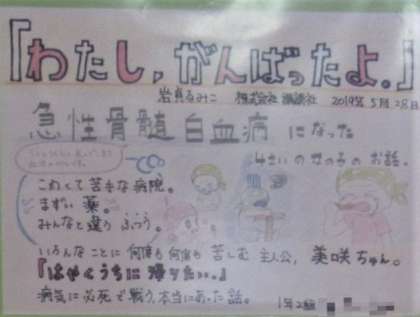 「わたし、がんばったよ。」
岩貞るみこ 株式会社 講談社 2019年5月28日
急性骨髄白血病 になった
4さいの女の子のお話。
こわくて苦手な病院。
まずい薬。
みんなと違うふつう。
いろんなことに何度も何度も苦しむ主人公、美咲ちゃん。
『はやくうちに帰りたい。』
病気に必死で戦う本当にあった話。
1年2組